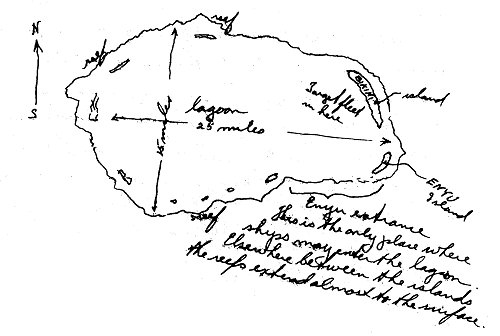 N
S
reef
reef
15 miles
lagoon
25 miles
Target fleet
in here
BIKINI
island
ENYU
Island
reef
Enyu entrance
This is the only place where
ships may enter the lagoon.
Elsewhere between the islands
the reefs extend almost to the surface.